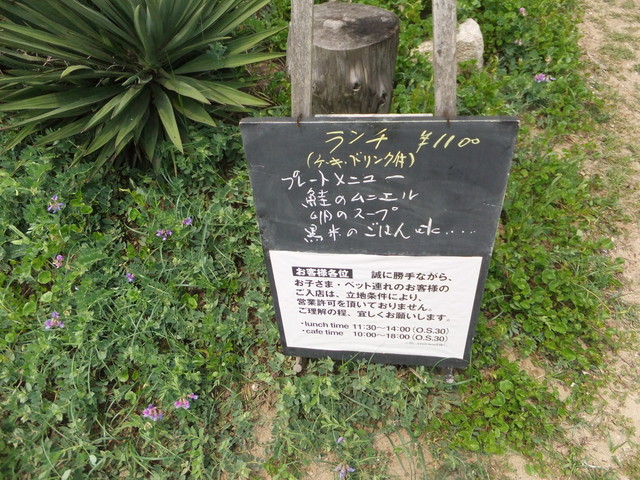 ランチ ¥1100
(ケーキ・ドリンク付)
プレートメニュー
鮭のムニエル
卵のスープ
黒米のごはん etc....
お客様各位 誠に勝手ながら、
お子さま・ペット連れのお客様の
ご入店は、立地条件により、
営業許可を頂いておりません。
ご理解の程、宜しくお願いします。
・lunch time 11:30〜14:00 (O.S.30)
・cafe time 10:00〜18:00 (O.S.30)